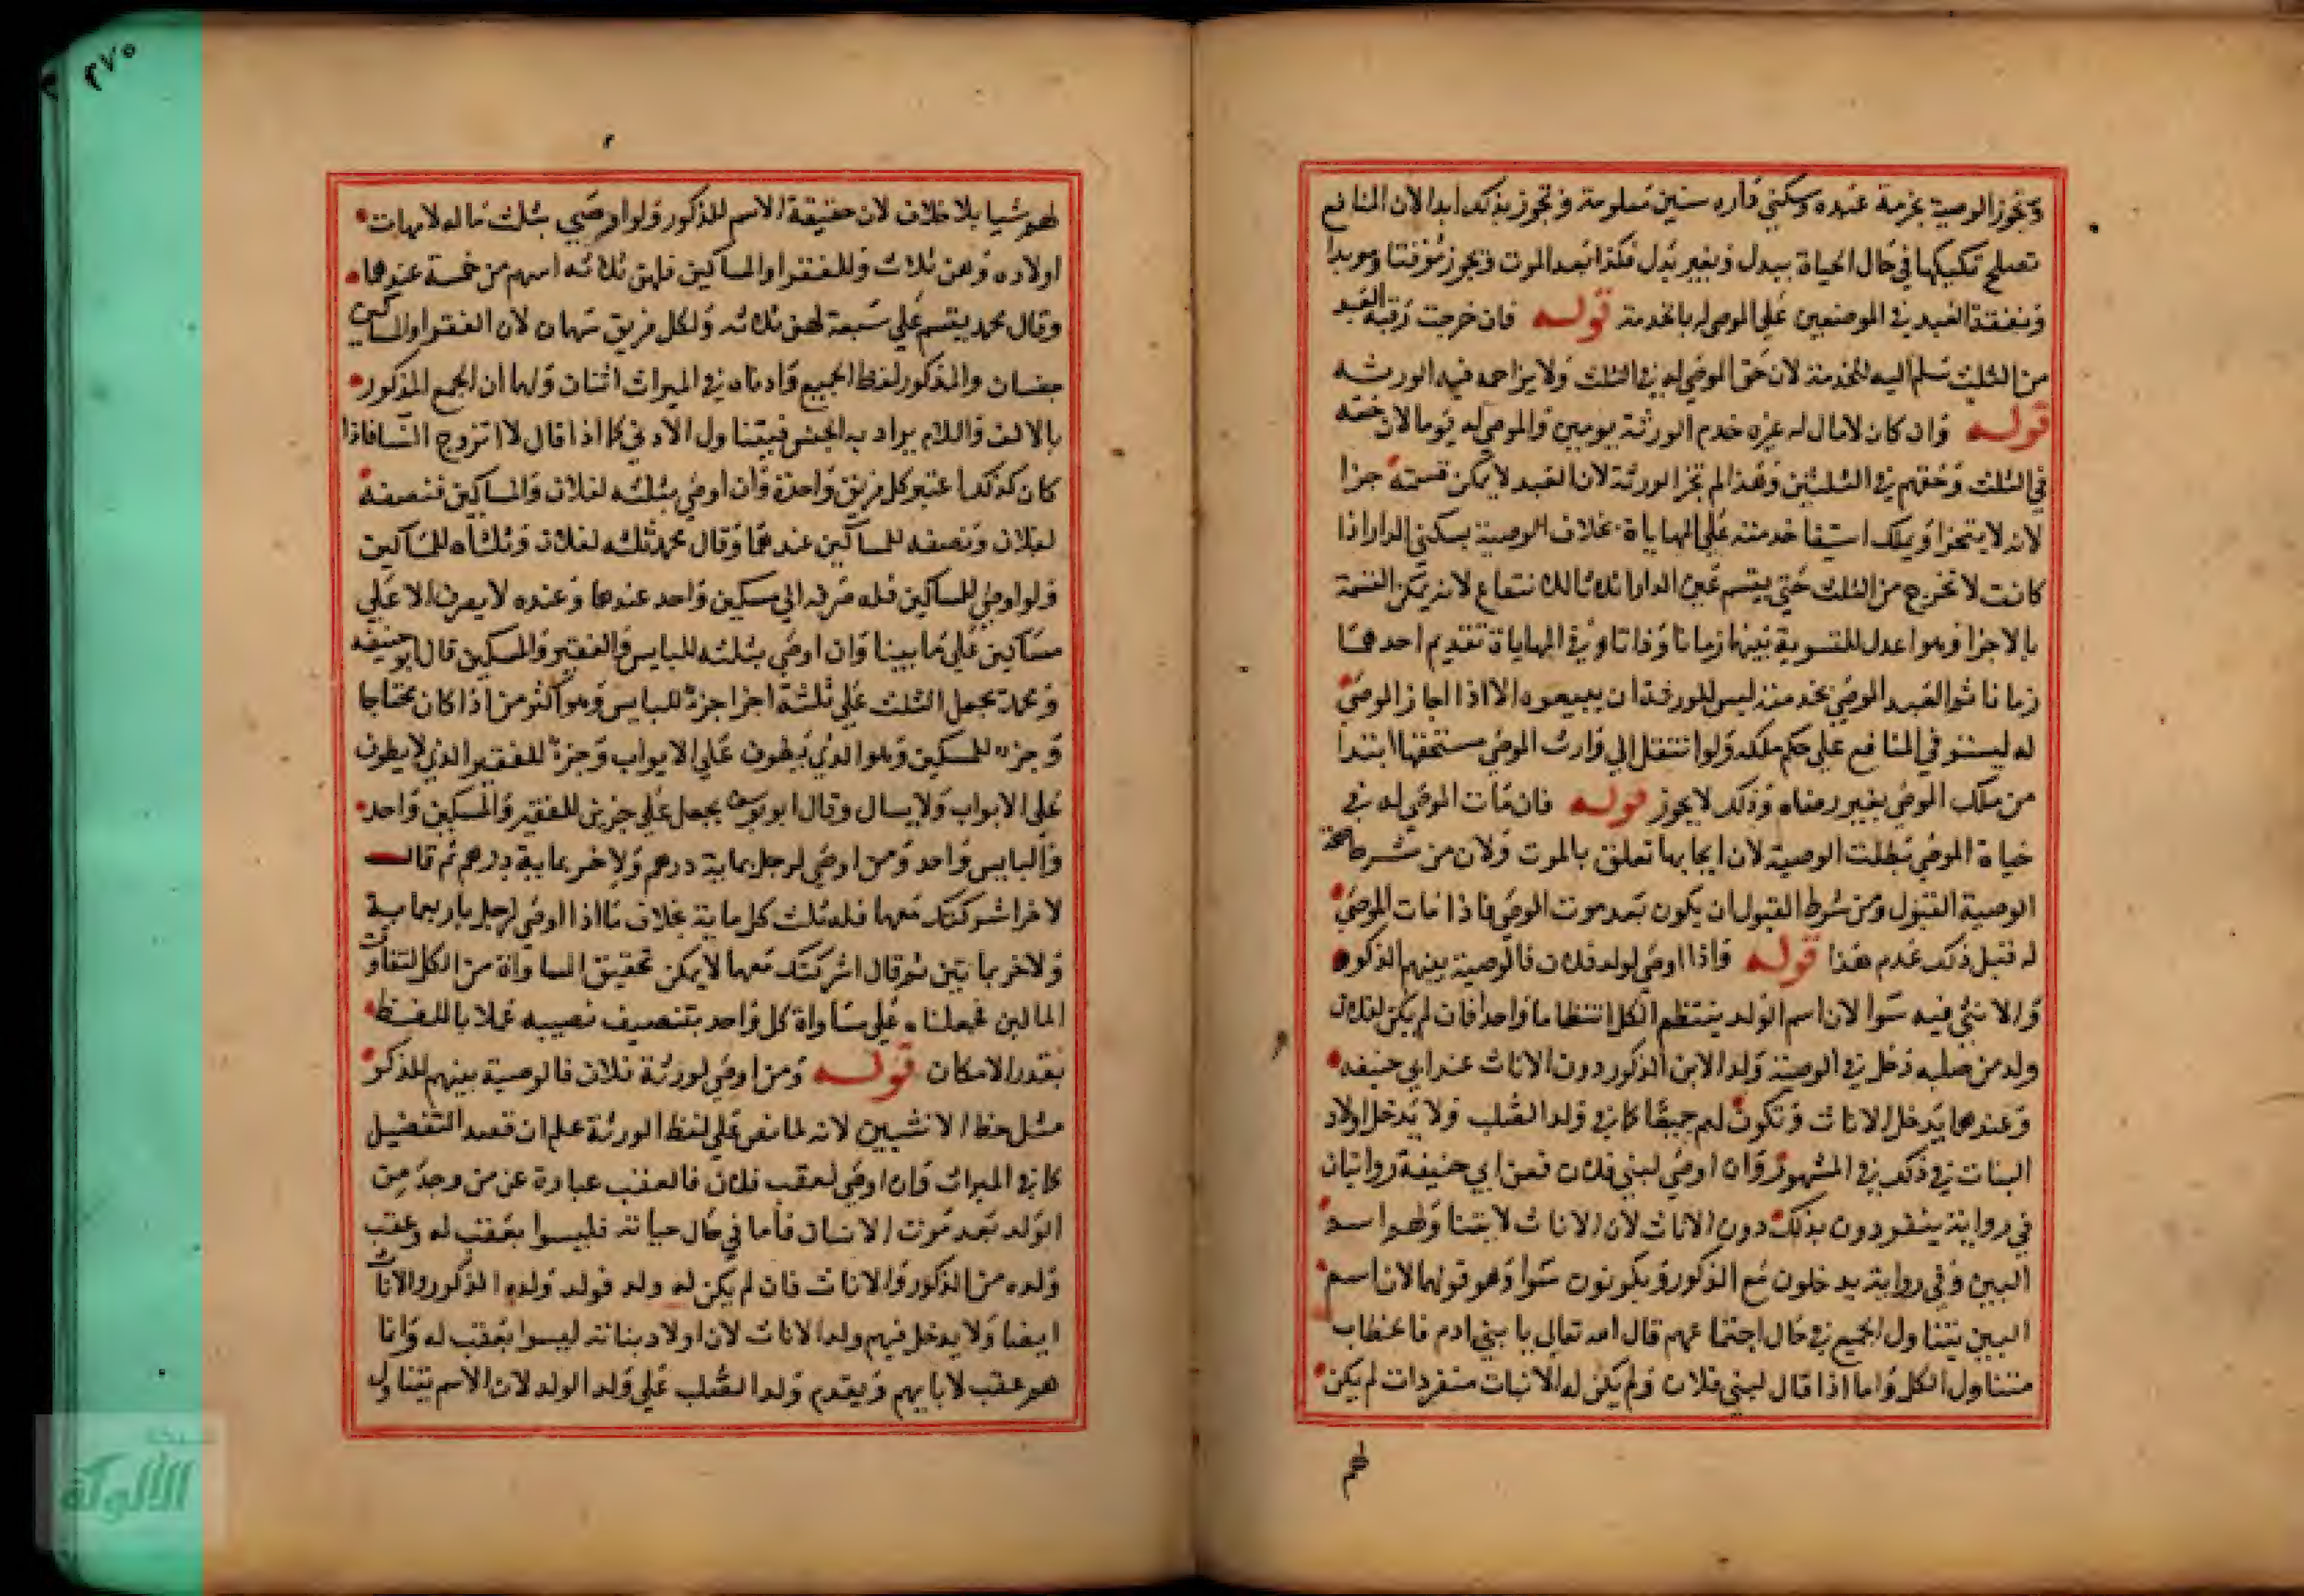 وتجوز الوصية بخدمة عبده وسكني داره سنين معلومة وتجوز بذلك ابدا لان المنافع
تصلح تمليكها في حال الحياة ببدل وبغير بدل فكذا بعد الموت وتجوز موقتا وموبدا
ونفقة العبد في الموضعين علي الموصي له بالخدمة قوله فان خرجت رقبة العبد
من الثلث سلم اليه للخدمة لان حق الموصي له في الثلث ولا يزاحمه فيه الورثه
قوله وان كان لا مال له غيره خدم الورثة يومين والموصي له يوما لان حقه
في الثلث وحقهم في الثلثين وهذا لم تجز الورثة لان العبد لا يمكن قسمته جزا
لانه لا يتجزا ويملك استيفا خدمته علي المهاياة بخلاف الوصية بسكني الدار اذا
كانت لا تخرج من الثلث حتي يقسم عين الدار اثلاثا للانتفاع لانه يمكن القسمة
بالاجزا وهو اعدل للتسوية بينهما زمانا وذاتا وفي المهاياة تقديم احدهما
زمانا ثم العبد الموصي بخدمته ليس للورثة ان يبيعوه الا اذا اجاز الموصي
له ليستو في المنافع علي حكم ملكه ولو انتقل الي وارث الموصي مستحقها ابتدا
من ملك الموصي بغير رضاه وذلك لا يجوز قوله فان مات الموصي له في
حياة الموصي بطلت الوصية لان ايجابها تعلق بالموت ولان من شرط صحة
الوصية القبول ومن شرط القبول ان يكون بعد موت الموصي فاذا مات الموصي
له قبل ذلك عدم هذا قوله واذا اوصي لولد فلان فالوصية بينهم الذكور
والانثي فيه سوا لان اسم الولد ينتظم الكل انتظاما واحدا فان لم يكن لفلان
ولد من صلبه دخل في الوصية ولد الابن الذكور دون الاناث عند ابي حنيفه
وعندهما يدخل الاناث وتكون لهم جميعا كما في ولد الصلب ولا يدخل اولاد
البنات في ذلك في المشهور وان اوصي لبني فلان فعن ابي حنيفة روايتان
في رواية ينفردون بذلك دون الاناث لان الاناث لا بتنا ولهم اسم
البنين وفي رواية يدخلون مع الذكور ويكونون سوا وهو قولهما لان اسم
البنين يتناول الجميع في حال اجتماعهم قال الله تعالي يا بني ادم فالخطاب
متناول الكل واما اذا قال لبني فلان ولم يكن له الا بنات منفردات لم يكن
لهم
٢٧٥
لهم شيا بلا خلاف لان حقيقة الاسم للذكور ولو اوصي بثلث ماله لامهات
اولاده وهن ثلاث وللفقرا والمساكين فلهن ثلاثه اسهم من خمسة عندهما
وقال محمد يقسم علي سبعة لهن ثلاثه ولكل فريق سهمان لان الفقرا والمساكين
جنسان والمذكور لفظ الجميع وادناه في الميراث اثنان ولهما ان الجمع المذكور
بالالف واللام يراد به الجنس فيتناول الادني كما اذا قال لا اتزوج النسا فاذا
كان كذلك اعتبر كل فريق واحدة وان اوصي بثلثه لفلان والمساكين فنصفه
لفلان ونصفه للمساكين عندهما وقال محمد ثلثه لفلان وثلثاه للمساكين
ولو اوصي للمساكين فله صرفه الي مسكين واحد عندهما وعنده لا يصرف الا علي
مساكين علي ما بينا وان اوصي بثلثه للبايس والفقير والمسكين قال ابو حنيفه
ومحمد يجعل الثلث علي ثلثة اجزا جزء للبايس وهو اكثر من اذا كان محتاجا
وجزء للمسكين وهو الذي يطوف علي الابواب وجزء للفقير الذي لا يطوف
علي الابواب ولا يسال وقال ابو يوسف يجعل علي جزين للفقير والمسكين واحد
والبايس واحد ومن اوصي لرجل بماية درهم ولاخر بماية درهم ثم قال
لاخر اشركتك معهما فله ثلث كل ماية بخلاف ما اذا اوصي لرجل باربعماية
ولاخر بمايتين ثم قال اشركتك معهما لا يمكن تحقيق المساواة من الكل لتفاوت
المالين فجعلناه علي مساواة كل واحد بتنصيف نصيبه عملا باللفظ
بقدر الامكان قوله ومن اوصي لورثة فلان فالوصية بينهم للذكر
مثل حظ الانثيين لانه لما نص علي لفظ الورثة علم ان قصد التفضيل
كما في الميراث وان اوصي لعقب فلان فالعقب عبارة عن من وجد من
الولد بعد موت الانسان فاما في حال حياته فليسوا بعقب له وعقب
ولده من الذكور والاناث فان لم يكن له ولد فولد ولده الذكور والاناث
ايضا ولا يدخل فيهم ولد الاناث لان اولاد بناته ليسوا بعقب له وانما
هم عقب لابايهم ويقدم ولد الصلب علي ولد الولد لان الاسم يتناول
الألوكة